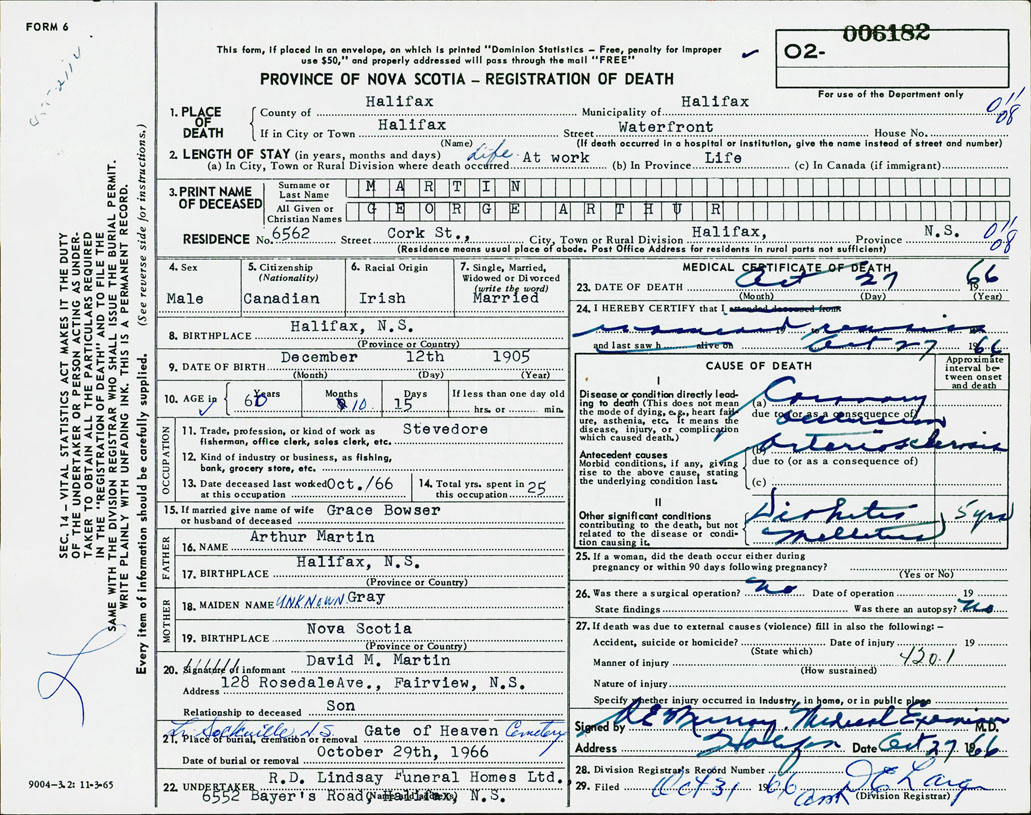 FORM 6
This form, if placed in an envelope, on which is printed "Dominion Statistics – Free, penalty for improper
use $50," and properly addressed will pass through the mail "FREE"
PROVINCE OF NOVA SCOTIA – REGISTRATION OF DEATH
006182
O2-
For use of the Department only
011
08
1. PLACE OF DEATH
County of Halifax Municipality of Halifax
If in City or Town Halifax Street Waterfront House No.
(Name) (If death occurred in a hospital or institution, give the name instead of street and number)
2. LENGTH OF STAY (in years, months and days)
(a) In City, Town or Rural Division where death occurred Life At work (b) In Province Life (c) In Canada (if immigrant)
3. PRINT NAME OF DECEASED
Surname or Last Name MARTIN
All Given or Christian Names GEORGE ARTHUR
RESIDENCE No. 6562 Street Cork St., City, Town or Rural Division Halifax, Province N.S.
(Residence means usual place of abode. Post Office Address for residents in rural parts not sufficient)
011
08
4. Sex
Male
5. Citizenship
(Nationality)
Canadian
6. Racial Origin
Irish
7. Single, Married,
Widowed or Divorced
(write the word)
Married
8. BIRTHPLACE Halifax, N.S.
(Province or Country)
9. DATE OF BIRTH December 12th 1905
(Month) (Day) (Year)
10. AGE in Years 60 Months 10 Days 15 If less than one day old
hrs. or min.
OCCUPATION
11. Trade, profession, or kind of work as Stevedore
fisherman, office clerk, sales clerk, etc.
12. Kind of industry or business, as fishing,
bank, grocery store, etc.
13. Date deceased last worked Oct./66
at this occupation
14. Total yrs. spent in
this occupation 25
15. If married give name of wife Grace Bowser
or husband of deceased
FATHER
16. NAME Arthur Martin
17. BIRTHPLACE Halifax, N.S.
(Province or Country)
MOTHER
18. MAIDEN NAME UNKNOWN Gray
19. BIRTHPLACE Nova Scotia
(Province or Country)
20. Signature of informant David M. Martin
Address 128 RosedaleAve., Fairview, N.S.
Relationship to deceased Son
L. Sackville, N.S.
21. Place of burial, cremation or removal Gate of Heaven Cemetery
Date of burial or removal October 29th, 1966
22. UNDERTAKER R.D. Lindsay Funeral Homes Ltd.
(Name and address)
6552 Bayer's Road, Halifax, N.S.
MEDICAL CERTIFICATE OF DEATH
23. DATE OF DEATH Oct 27 1966
(Month) (Day) (Year)
24. I HEREBY CERTIFY that I attended deceased from
and last saw h alive on Oct 27 1966
CAUSE OF DEATH
Approximate interval between onset and death
I
Disease or condition directly leading to death (This does not mean
the mode of dying, e.g., heart failure, asthenia, etc. It means the
disease, injury, or complication
which caused death.)
(a) Coronary
due to (or as a consequence of)
occlusion
Antecedent causes
Morbid conditions, if any, giving
rise to the above cause, stating
the underlying condition last.
(b) Arteriosclerosis
due to (or as a consequence of)
(c)
II
Other significant conditions
contributing to the death, but not
related to the disease or condition causing it.
Diabetes
Mellitus
5 yrs
25. If a woman, did the death occur either during
pregnancy or within 90 days following pregnancy?
(Yes or No)
26. Was there a surgical operation? No Date of operation 19
State findings Was there an autopsy? No
27. If death was due to external causes (violence) fill in also the following: –
Accident, suicide or homicide? Date of injury 19
(State which)
420.1
Manner of injury
(How sustained)
Nature of injury
Specify whether injury occurred in Industry, in home, or in public place
Signed by Medical Examiner M.D.
Address Halifax Date Oct 27 1966
28. Division Registrar's Record Number
29. Filed Oct 31 1966
(Division Registrar)
SEC. 14 – VITAL STATISTICS ACT MAKES IT THE DUTY
OF THE UNDERTAKER OR PERSON ACTING AS UNDERTAKER TO OBTAIN ALL THE PARTICULARS REQUIRED
IN THE "REGISTRATION OF DEATH" AND TO FILE THE
SAME WITH THE DIVISION REGISTRAR WHO SHALL ISSUE THE BURIAL PERMIT.
WRITE PLAINLY WITH UNFADING INK. THIS IS A PERMANENT RECORD.
Every item of information should be carefully supplied. (See reverse side for instructions.)
9004–3.2: 11-3-65